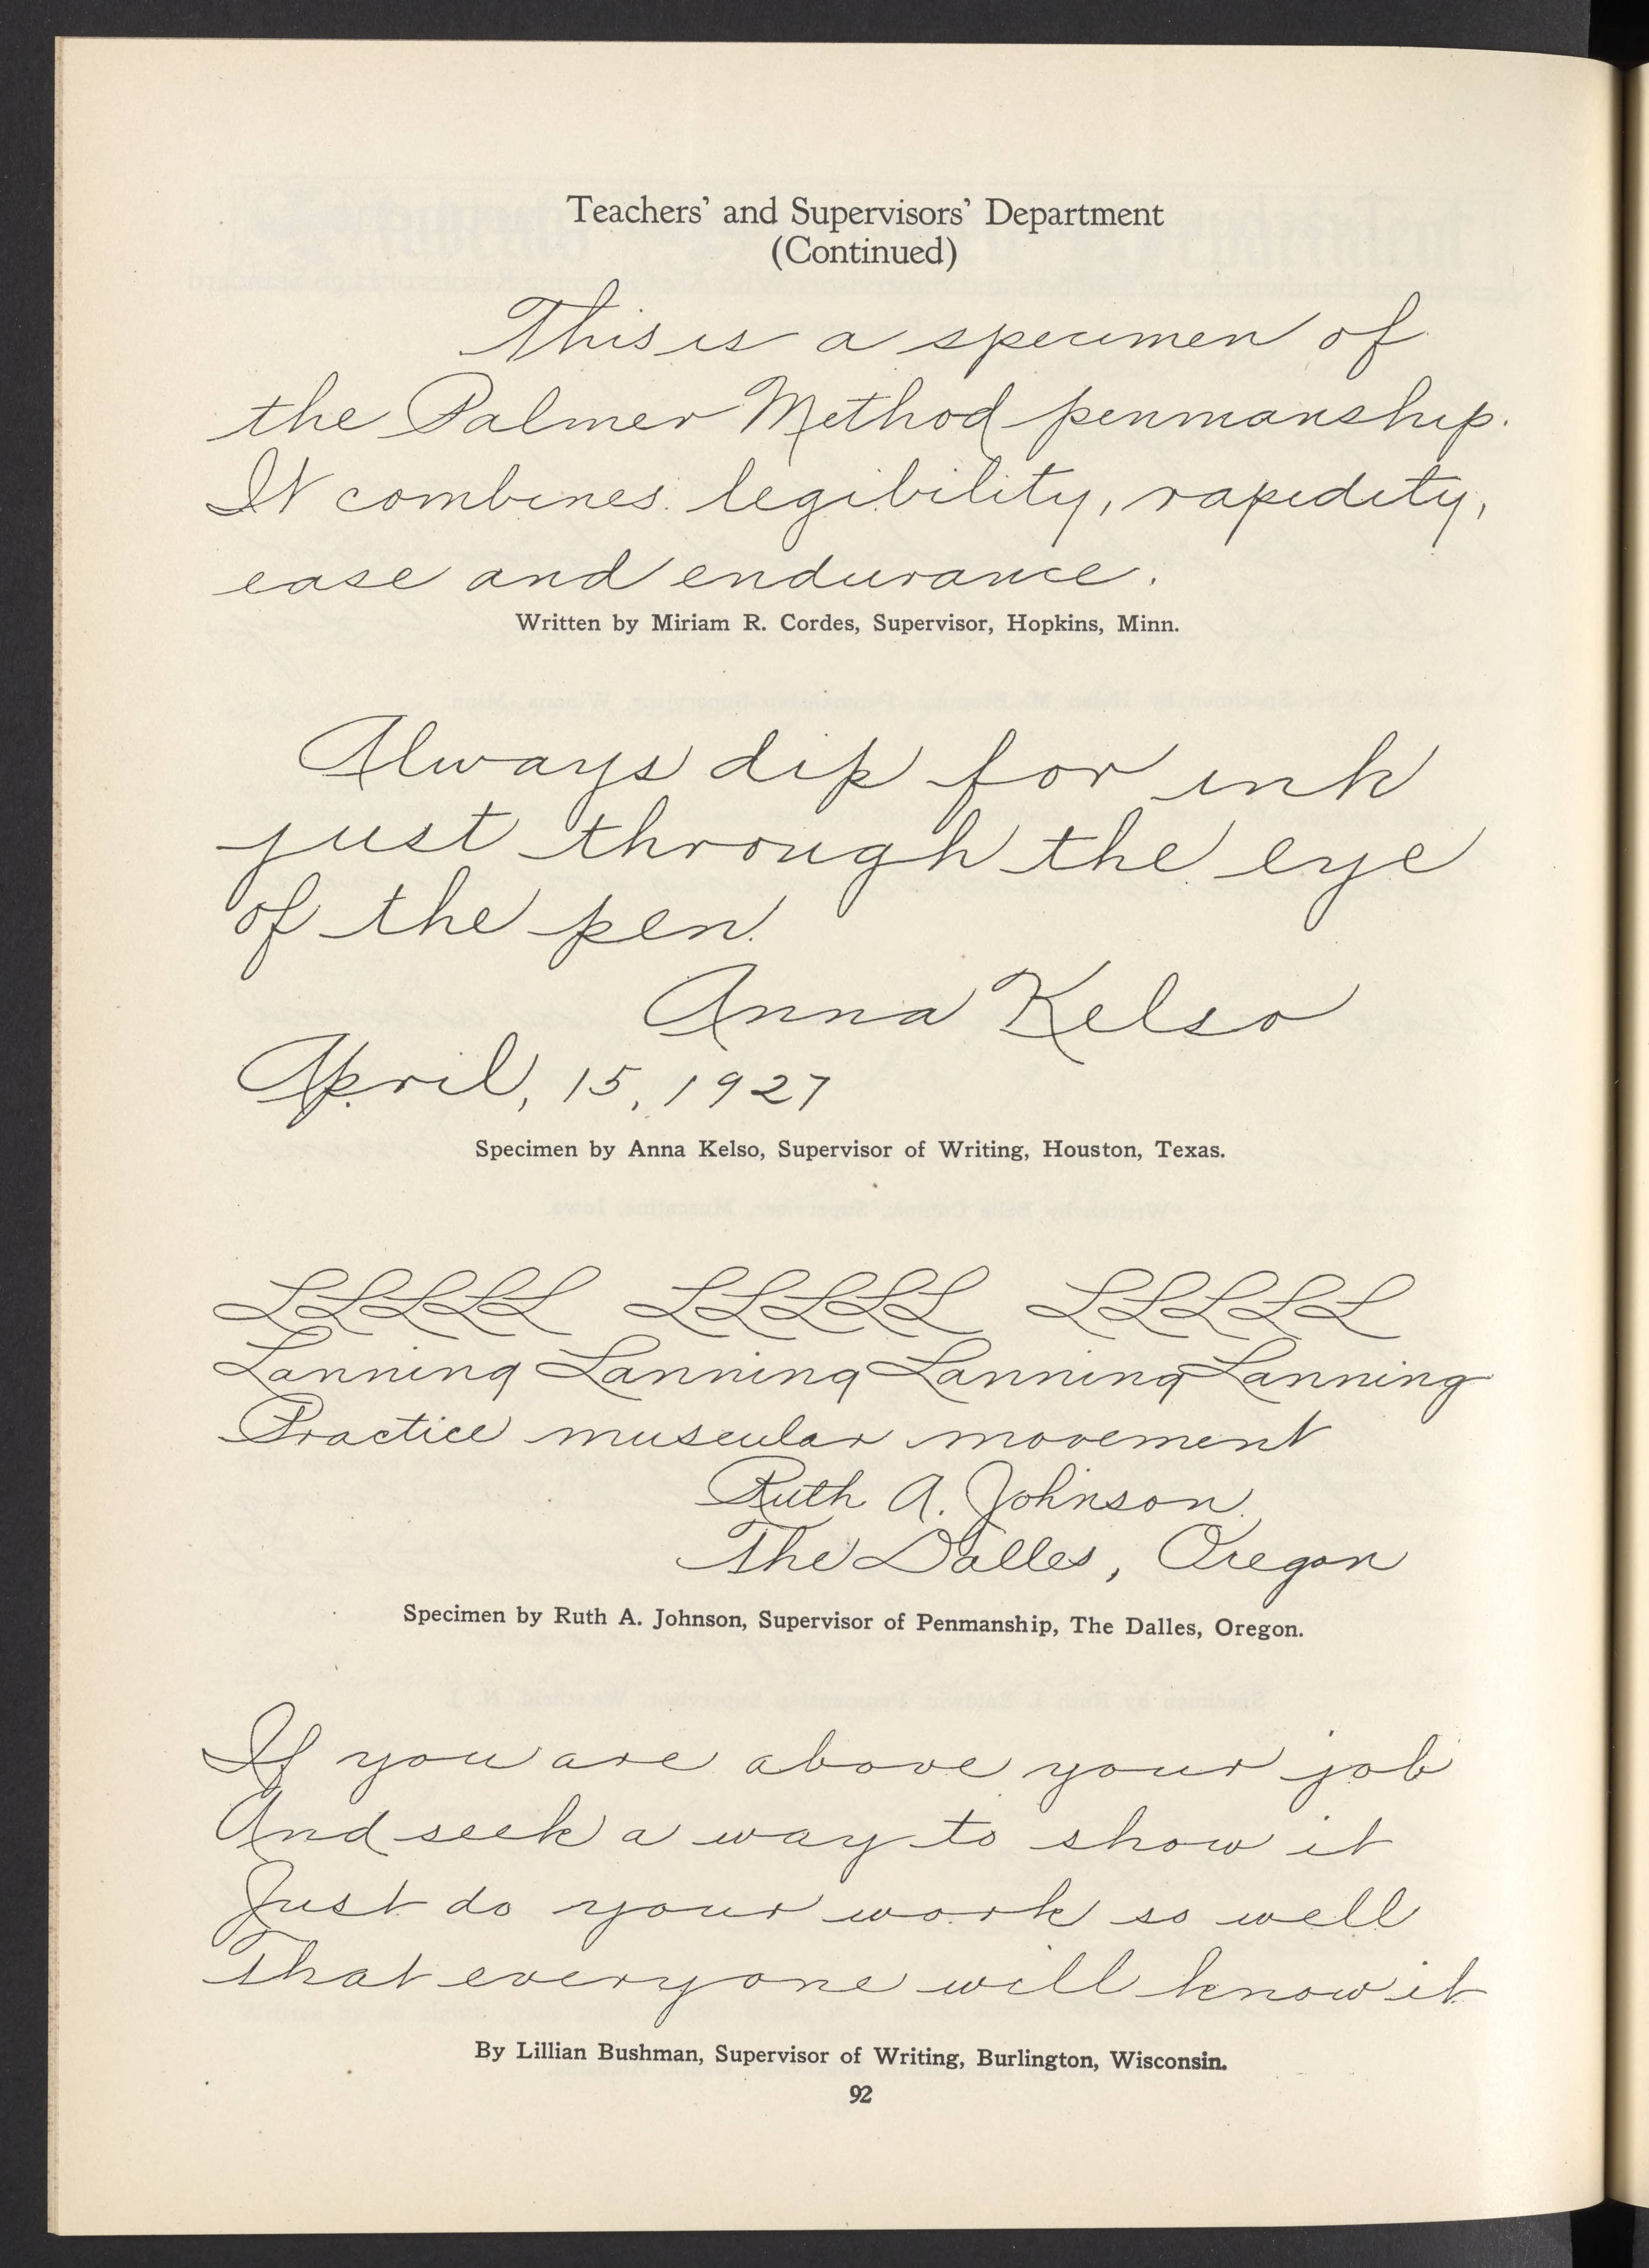 Teachers' and Supervisors' Department
(Continued)
This is a specimen of
the Palmer Method penmanship.
It combines legibility, rapidity,
ease and endurance.
Written by Miriam R. Cordes, Supervisor, Hopkins, Minn.
Always dip for ink
just through the eye
of the pen.
Anna Kelso
April, 15, 1927
Specimen by Anna Kelso, Supervisor of Writing, Houston, Texas.
LLLLL LLLLL LLLLL
Lanning Lanning Lanning Lanning
Practice muscular movement
Ruth A. Johnson
The Dalles, Oregon
Specimen by Ruth A. Johnson, Supervisor of Penmanship, The Dalles, Oregon.
If you are above your job
And seek a way to show it
Just do your work so well
That everyone will know it
By Lillian Bushman, Supervisor of Writing, Burlington, Wisconsin.
92